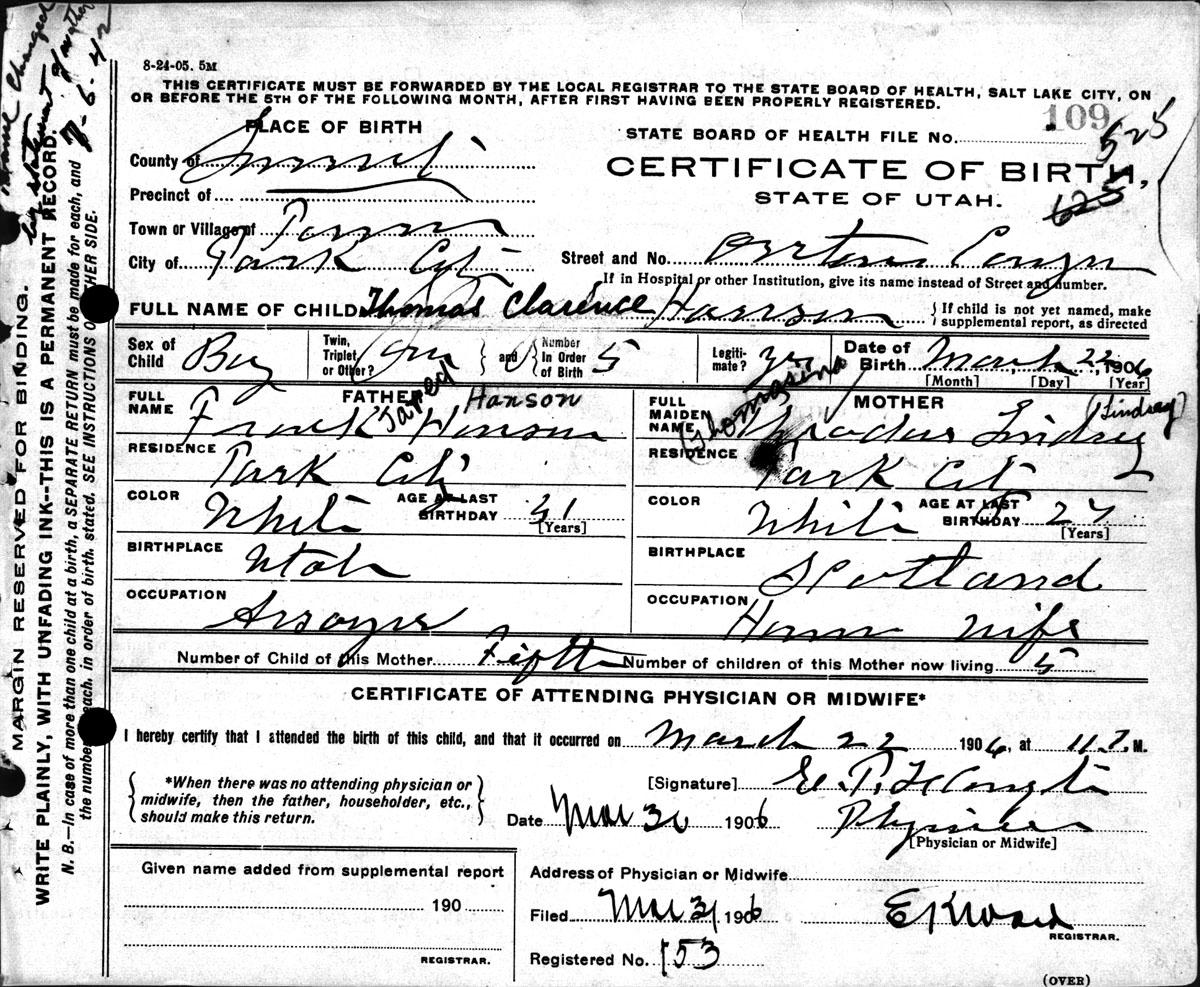 8-24-05. 5M
THIS CERTIFICATE MUST BE FORWARDED BY THE LOCAL REGISTRAR TO THE STATE BOARD OF HEALTH, SALT LAKE CITY, ON
OR BEFORE THE 5TH OF THE FOLLOWING MONTH, AFTER FIRST HAVING BEEN PROPERLY REGISTERED.
109
PLACE OF BIRTH
STATE BOARD OF HEALTH FILE No. 525
County of Summit
CERTIFICATE OF BIRTH,
Precinct of
STATE OF UTAH.
625
Town or Village of
City of Park City
Street and No.
If in Hospital or other Institution, give its name instead of Street and number.
FULL NAME OF CHILD Thomas Clarence Hanson
If child is not yet named, make
supplemental report, as directed
Sex of Child Boy
Twin, Triplet or Other?
and
Number In Order of Birth 5
Legitimate? yes
Date of Birth March 22 1906
[Month] [Day] [Year]
FATHER
FULL NAME Frank Hanson
Jared Hanson
MOTHER
FULL MAIDEN NAME Lindsey
(Thomasina (Lindsey)
RESIDENCE Park City
RESIDENCE Park City
COLOR White
AGE AT LAST BIRTHDAY 31
[Years]
COLOR White
AGE AT LAST BIRTHDAY 27
[Years]
BIRTHPLACE Utah
BIRTHPLACE Scotland
OCCUPATION Assayer
OCCUPATION House Wife
Number of Child of this Mother Fifth
Number of children of this Mother now living 5
CERTIFICATE OF ATTENDING PHYSICIAN OR MIDWIFE*
I hereby certify that I attended the birth of this child, and that it occurred on March 22 1906, at 11 P. M.
*When there was no attending physician or
midwife, then the father, householder, etc.,
should make this return.
[Signature] E. P.
Date Mar 30 1906
Physician
[Physician or Midwife]
Given name added from supplemental report
190
REGISTRAR.
Address of Physician or Midwife
Filed Mar 31 1906
E K Ward
REGISTRAR.
Registered No. 153
(OVER)
MARGIN RESERVED FOR BINDING.
WRITE PLAINLY, WITH UNFADING INK--THIS IS A PERMANENT RECORD.
N. B.—In case of more than one child at a birth, a SEPARATE RETURN must be made for each, and
the number of each, in order of birth, stated. SEE INSTRUCTIONS ON OTHER SIDE.
name Changed
by statement of mother
7-6-42